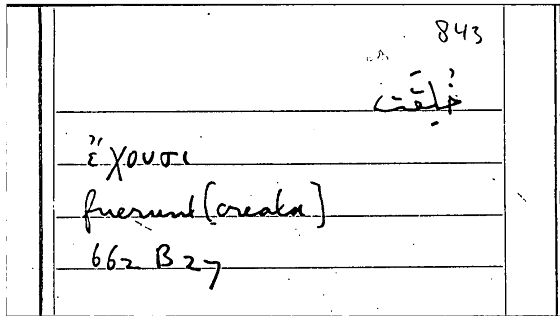 843
خُلِقَت
ἔχουσι
fuerunt [creata]
662 B 27